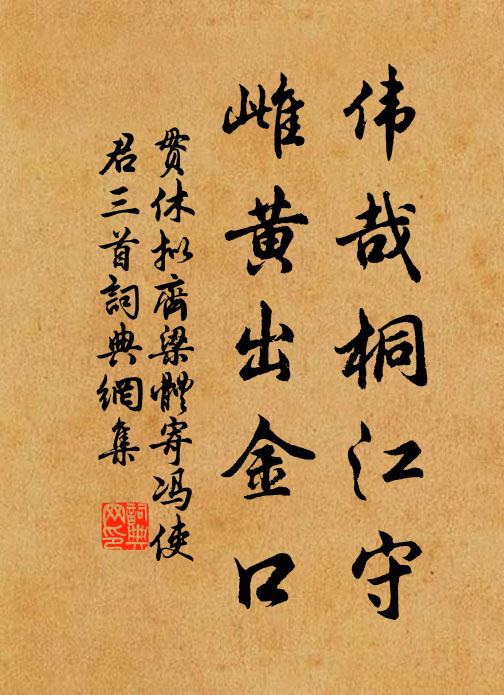 伟哉桐江守
雌黄出金口
贯休拟齊梁體寄冯使
君三首詞典網集
詞典
网印